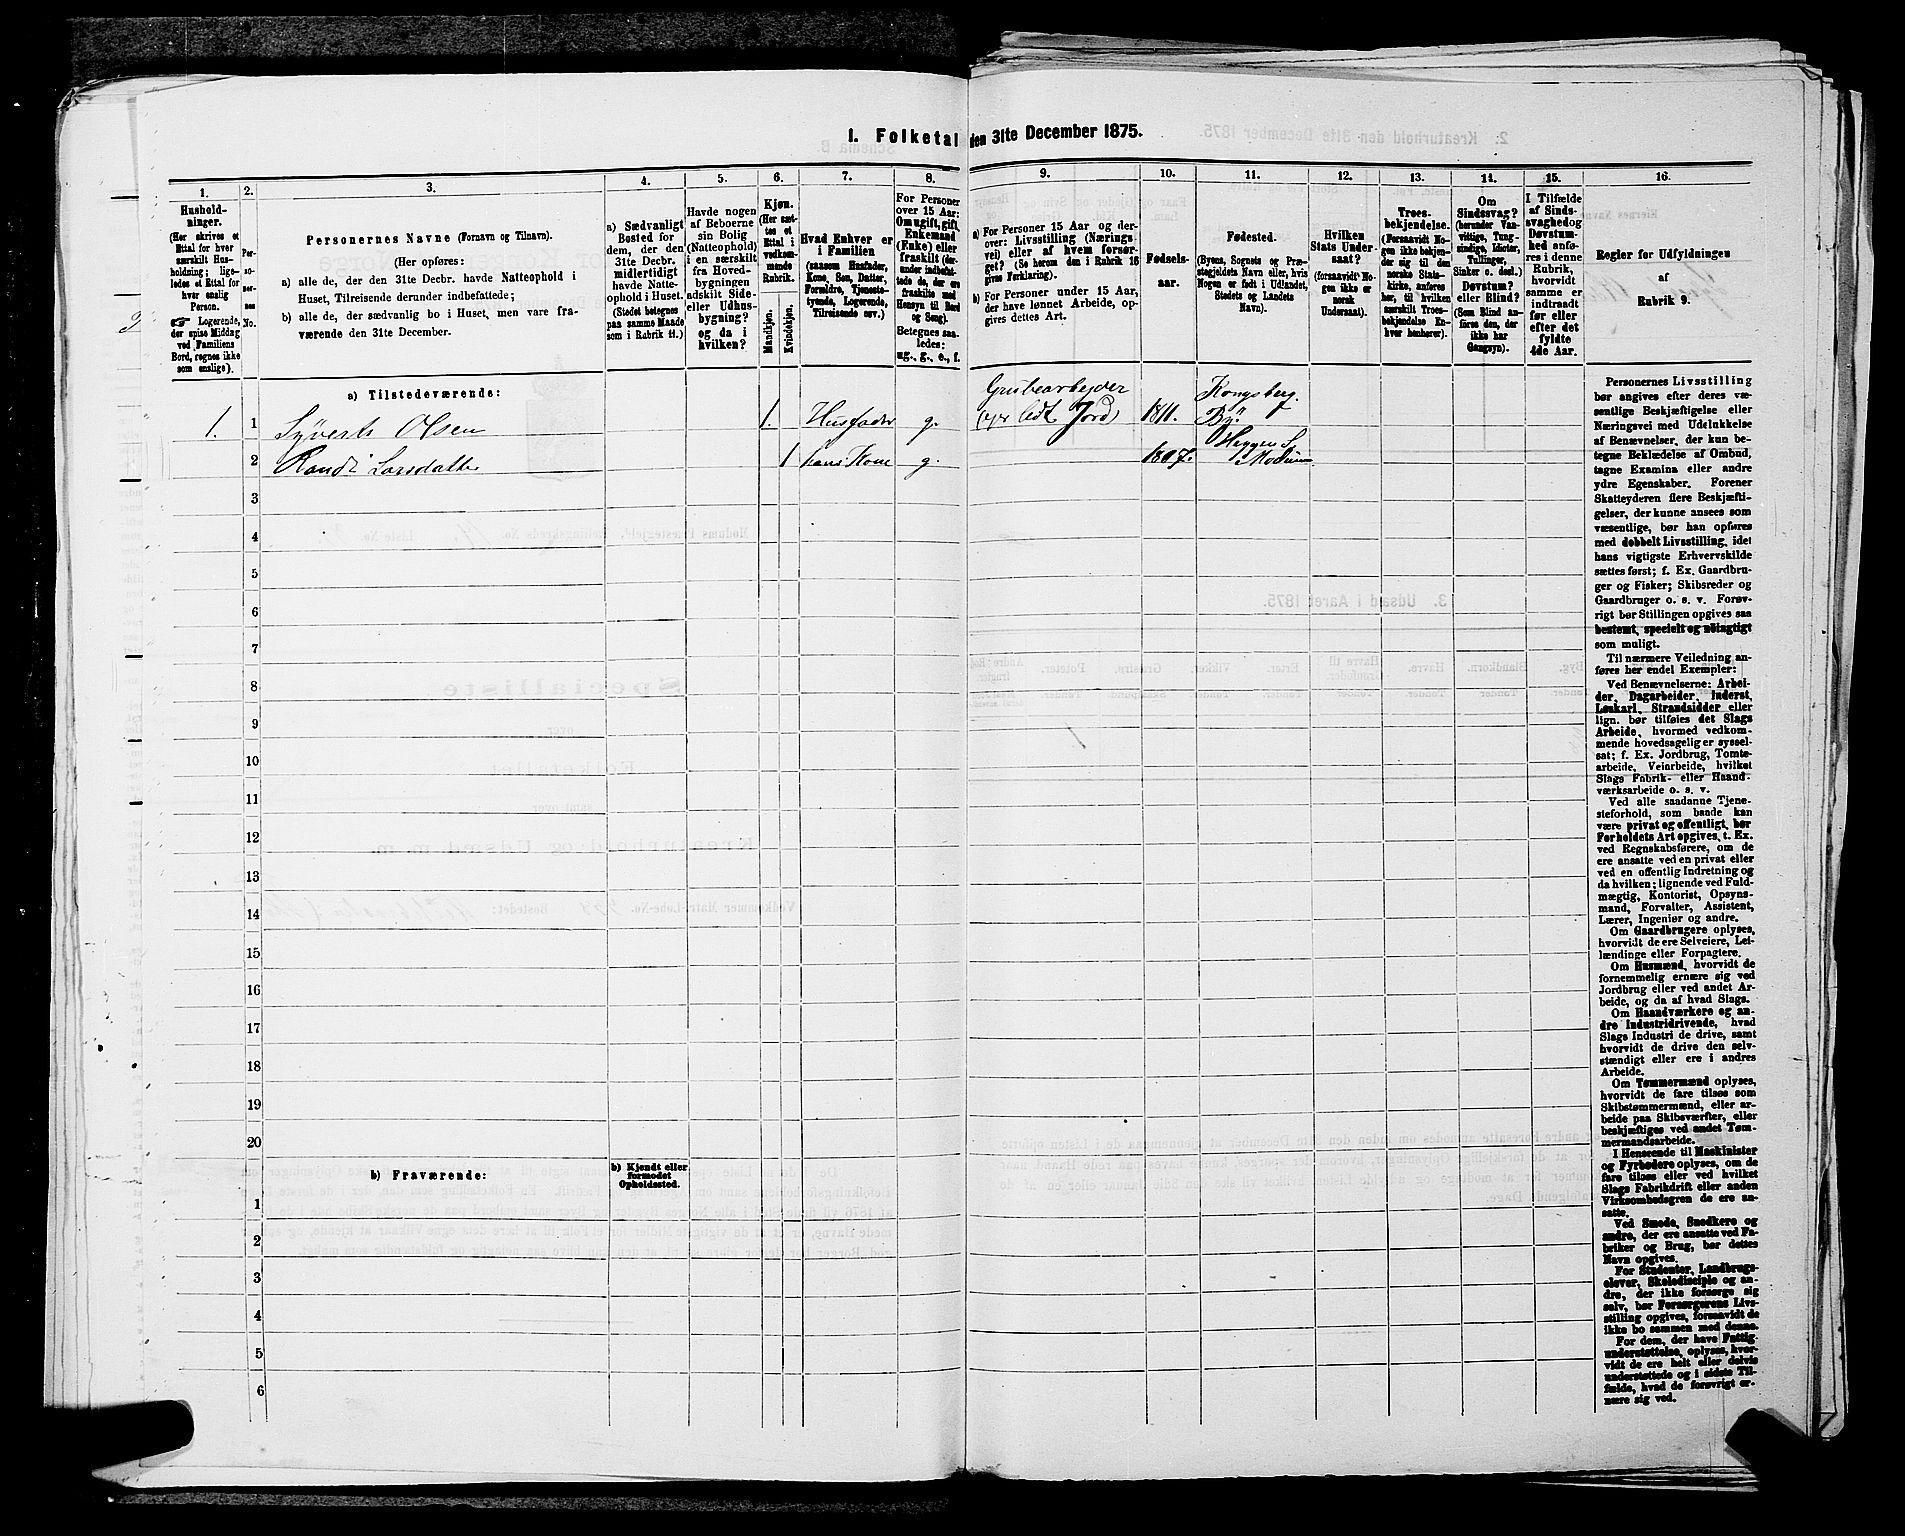 I. Folketal den 31te December 1875.
1.
2.
3.
4.
5.
6.
7.
8.
9.
10.
11.
12.
13.
14.
15.
16.
Hushold-
ninger.
(Her skrives et
Ettal for hver
særskilt Hus-
holdning; lige-
ledes et Ettal for
hver enslig
Person.
☞ Logerende,
der spise Middag
ved Familiens
Bord, regnes ikke
som enslige).
Per-
so-
ner-
nes
No.
Personernes Navne (Fornavn og Tilnavn).
(Her opføres:
a) alle de, der den 31te Decbr. havde Natteophold i
Huset, Tilreisende derunder indbefattede;
b) alle de, der sædvanlig bo i Huset, men vare fra-
værende den 31te December.
a) Sædvanligt
Bosted for
dem, der den
31te Decbr.
midlertidigt
havde Natte-
ophold i Huset.
(Stedet betegnes
paa samme Maade
som i Rubrik 11.)
Havde nogen
af Beboerne
sin Bolig
(Natteophold)
i en særskilt
fra Hoved-
bygningen
adskilt Side-
eller Udhus-
bygning?
og da i
hvilken?
Kjøn.
(Her sæt-
tes et
Ettal i
vedkom-
mende
Rubrik.
Mandkjøn.
Kvindekjøn.
Hvad Enhver er
i Familien
(saasom Husfader,
Kone, Søn, Datter,
Forældre, Tjeneste-
tyende, Logerende,
Tilreisende osv.)
For Personer
over 15 Aar:
Om ugift, gift,
Enkemand
(Enke) eller
fraskilt (der-
under indbefat-
tede de, der ere
fraskilte med
Hensyn til Bord
og Seng).
Betegnes saa-
ledes:
ug., g., e., f.
a) For Personer 15 Aar og der-
over: Livsstilling (Nærings-
vei) eller af hvem forsør-
get? (Se herom den i Rubrik 16
givne Forklaring).
b) For Personer under 15 Aar,
der have lønnet Arbeide, op-
gives dettes Art.
Fødsels-
aar.
Fødested.
(Byens, Sognets og Præ-
stegjeldets Navn eller, hvis
Nogen er født i Udlandet,
Stedets og Landets
Navn).
Hvilken
Stats Under-
saat?
(forsaavidt No-
gen ikke er
norsk
Undersaat).
Troes-
bekjendelse.
(Forsaavidt No-
gen ikke bekjen-
der sig til den
norske Stats-
kirke, anføres
her, til hvilken
særskilt Troes-
bekjendelse En-
hver henhører).
Om
Sindssvag?
(herunder Van-
vittige, Tung-
sindige, Idioter,
Tullinger,
Sinker o. desl.)
Døvstum?
eller Blind?
(Som Blind an-
føres den, der
ikke har
Gangsyn).
I Tilfælde
af Sinds-
svaghed og
Døvstum-
hed anfø-
res i denne
Rubrik,
hvorvidt
samme er
indtraadt
før eller
efter det
fyldte
4de Aar.
Regler for Udfyldningen
af
Rubrik 9.
a) Tilstedeværende:
1. 1 Syvert Olsen 1. Husfader g. Grubearbejder 1811. Kongsberg
By
2 Randi Larsdatter 1 hans Kone g. 1807. Heggen S
Modum
3
4
5
6
7
8
9
10
11
12
13
14
15
16
17
18
19
20
b) Fraværende:
b) Kjendt eller
formodet
Opholdssted.
1
2
3
4
5
6
Personernes Livsstilling
bør angives efter deres væ-
sentlige Beskjæftigelse eller
Næringsvei med Udelukkelse
af Benævnelser, der kun be-
tegne Beklædelse af Ombud,
tagne Examina eller andre
ydre Egenskaber. Forener
Skatteyderen flere Beskjæfti-
gelser, der kunne ansees som
væsentlige, bør han opføres
med dobbelt Livsstilling, idet
hans vigtigste Erhvervskilde
sættes først; f. Ex. Gaardbru-
ger og Fisker; Skibsreder og
Gaardbruger o. s. v. Forøv-
rigt bør Stillingen opgives saa
bestemt, specielt og nøiagtigt
som muligt.
Til nærmere Veiledning an-
føres her endel Exempler:
Ved Benævnelserne: Arbei-
der, Dagarbeider, Inderst,
Løskarl, Strandsidder eller
lign. bør tilføies det Slags
Arbeide, hvormed vedkom-
mende hovedsagelig er syssel-
sat; f. Ex. Jordbrug, Tomte-
arbeide, Veiarbeide, hvilket
Slags Fabrik- eller Haand-
værksarbeide o. s. v.
Ved alle saadanne Tjene-
steforhold, som baade kan
være privat og offentligt, bør
Forholdets Art opgives, t. Ex.
ved Regnskabsførere, om de
ere ansatte ved en privat eller
ved en offentlig Indretning og
da hvilken; lignende ved Fuld-
mægtig, Kontorist, Opsyns-
mand, Forvalter, Assistent,
Lærer, Ingeniør og andre.
Om Gaardbrugere oplyses,
hvorvidt de ere Selveiere, Lei-
lændinge eller Forpagtere.
Om Husmænd, hvorvidt de
fornemmelig ernære sig ved
Jordbrug eller ved andet Ar-
beide, og da af hvad Slags.
Om Haandværkere og an-
dre Industridrivende, hvad
Slags Industri de drive, samt
hvorvidt de drive den selv-
stændigt eller ere i andres
Arbeide.
Om Tømmermænd oplyses,
hvorvidt de fare tilsøs som
Skibstømmermænd, eller ar-
beide paa Skibsværfter, eller
beskjæftiges ved andet Tøm-
mermandsarbeide.
I Henseende til Maskinister
og Fyrbødere oplyses, om de
fare tilsøs eller ved hvilket
Slags Fabrikdrift eller anden
Virksomhedsgren de ere an-
satte.
Ved Smede, Snedkere og
andre, der ere ansatte ved Fa-
briker og Brug, bør dettes
Navn opgives.
For Studenter, Landbrugs-
elever, Skoledisciple og an-
dre, der ikke forsørge sig
selv, bør Forsørgerens Livs-
stilling opgives, forsaavidt de
ikke bo sammen med denne.
For dem, der have Fattig-
understøttelse, oplyses, hvor-
vidt de ere helt eller delvis
understøttede og i sidste Til-
fælde, hvad de forøvrigt er-
nære sig ved.